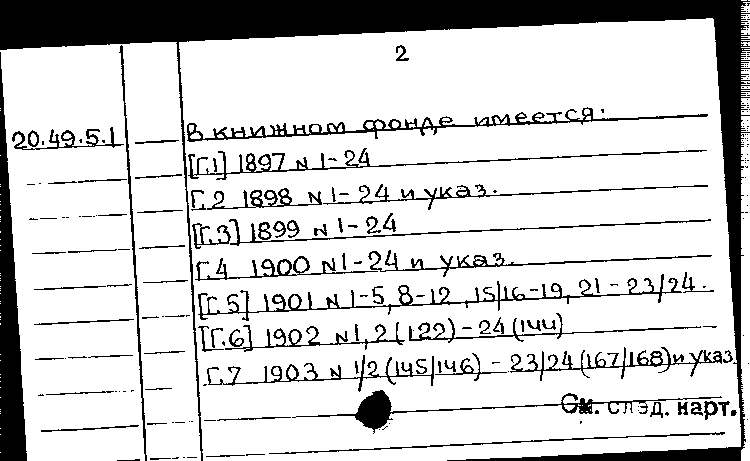 2
20.49.5.1 В книжном фонде имеется:
[Г.1] 1897 N 1-24
Г.2 1898 N 1-24 и указ.
[Г.3] 1899 N 1-24
Г.4 1900 N 1-24 и указ.
[Г.5] 1901 N 1-5, 8-12, 15/16-19, 21-23/24.
[Г.6] 1902 N 1, 2(122)-24(144)
Г.7 1903 N 1/2(145/146)-23/24(167/168) и указ
См. след. карт.